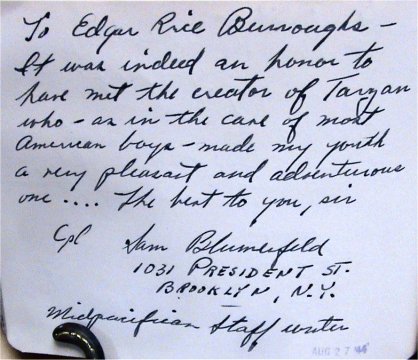 To Edgar Rice Burroughs -
It was indeed an honor to
have met the creator of Tarzan
who - as in the case of most
American boys - made my youth
a very pleasant and adventurous
one .... The best to you, sir
Cpl Sam Blumenfeld
1031 PRESIDENT ST.
BROOKLYN, N.Y.
Midpacifican Staff writer
AUG 27